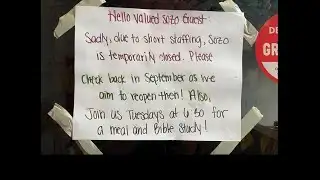 Hello valued Sozo Guest:
Sadly, due to short staffing, Sozo
is temporarily closed. Please
Check back in September as we
aim to reopen then! Also,
Join us Tuesdays at 6:30 for
a meal and Bible Study!
DE
GR